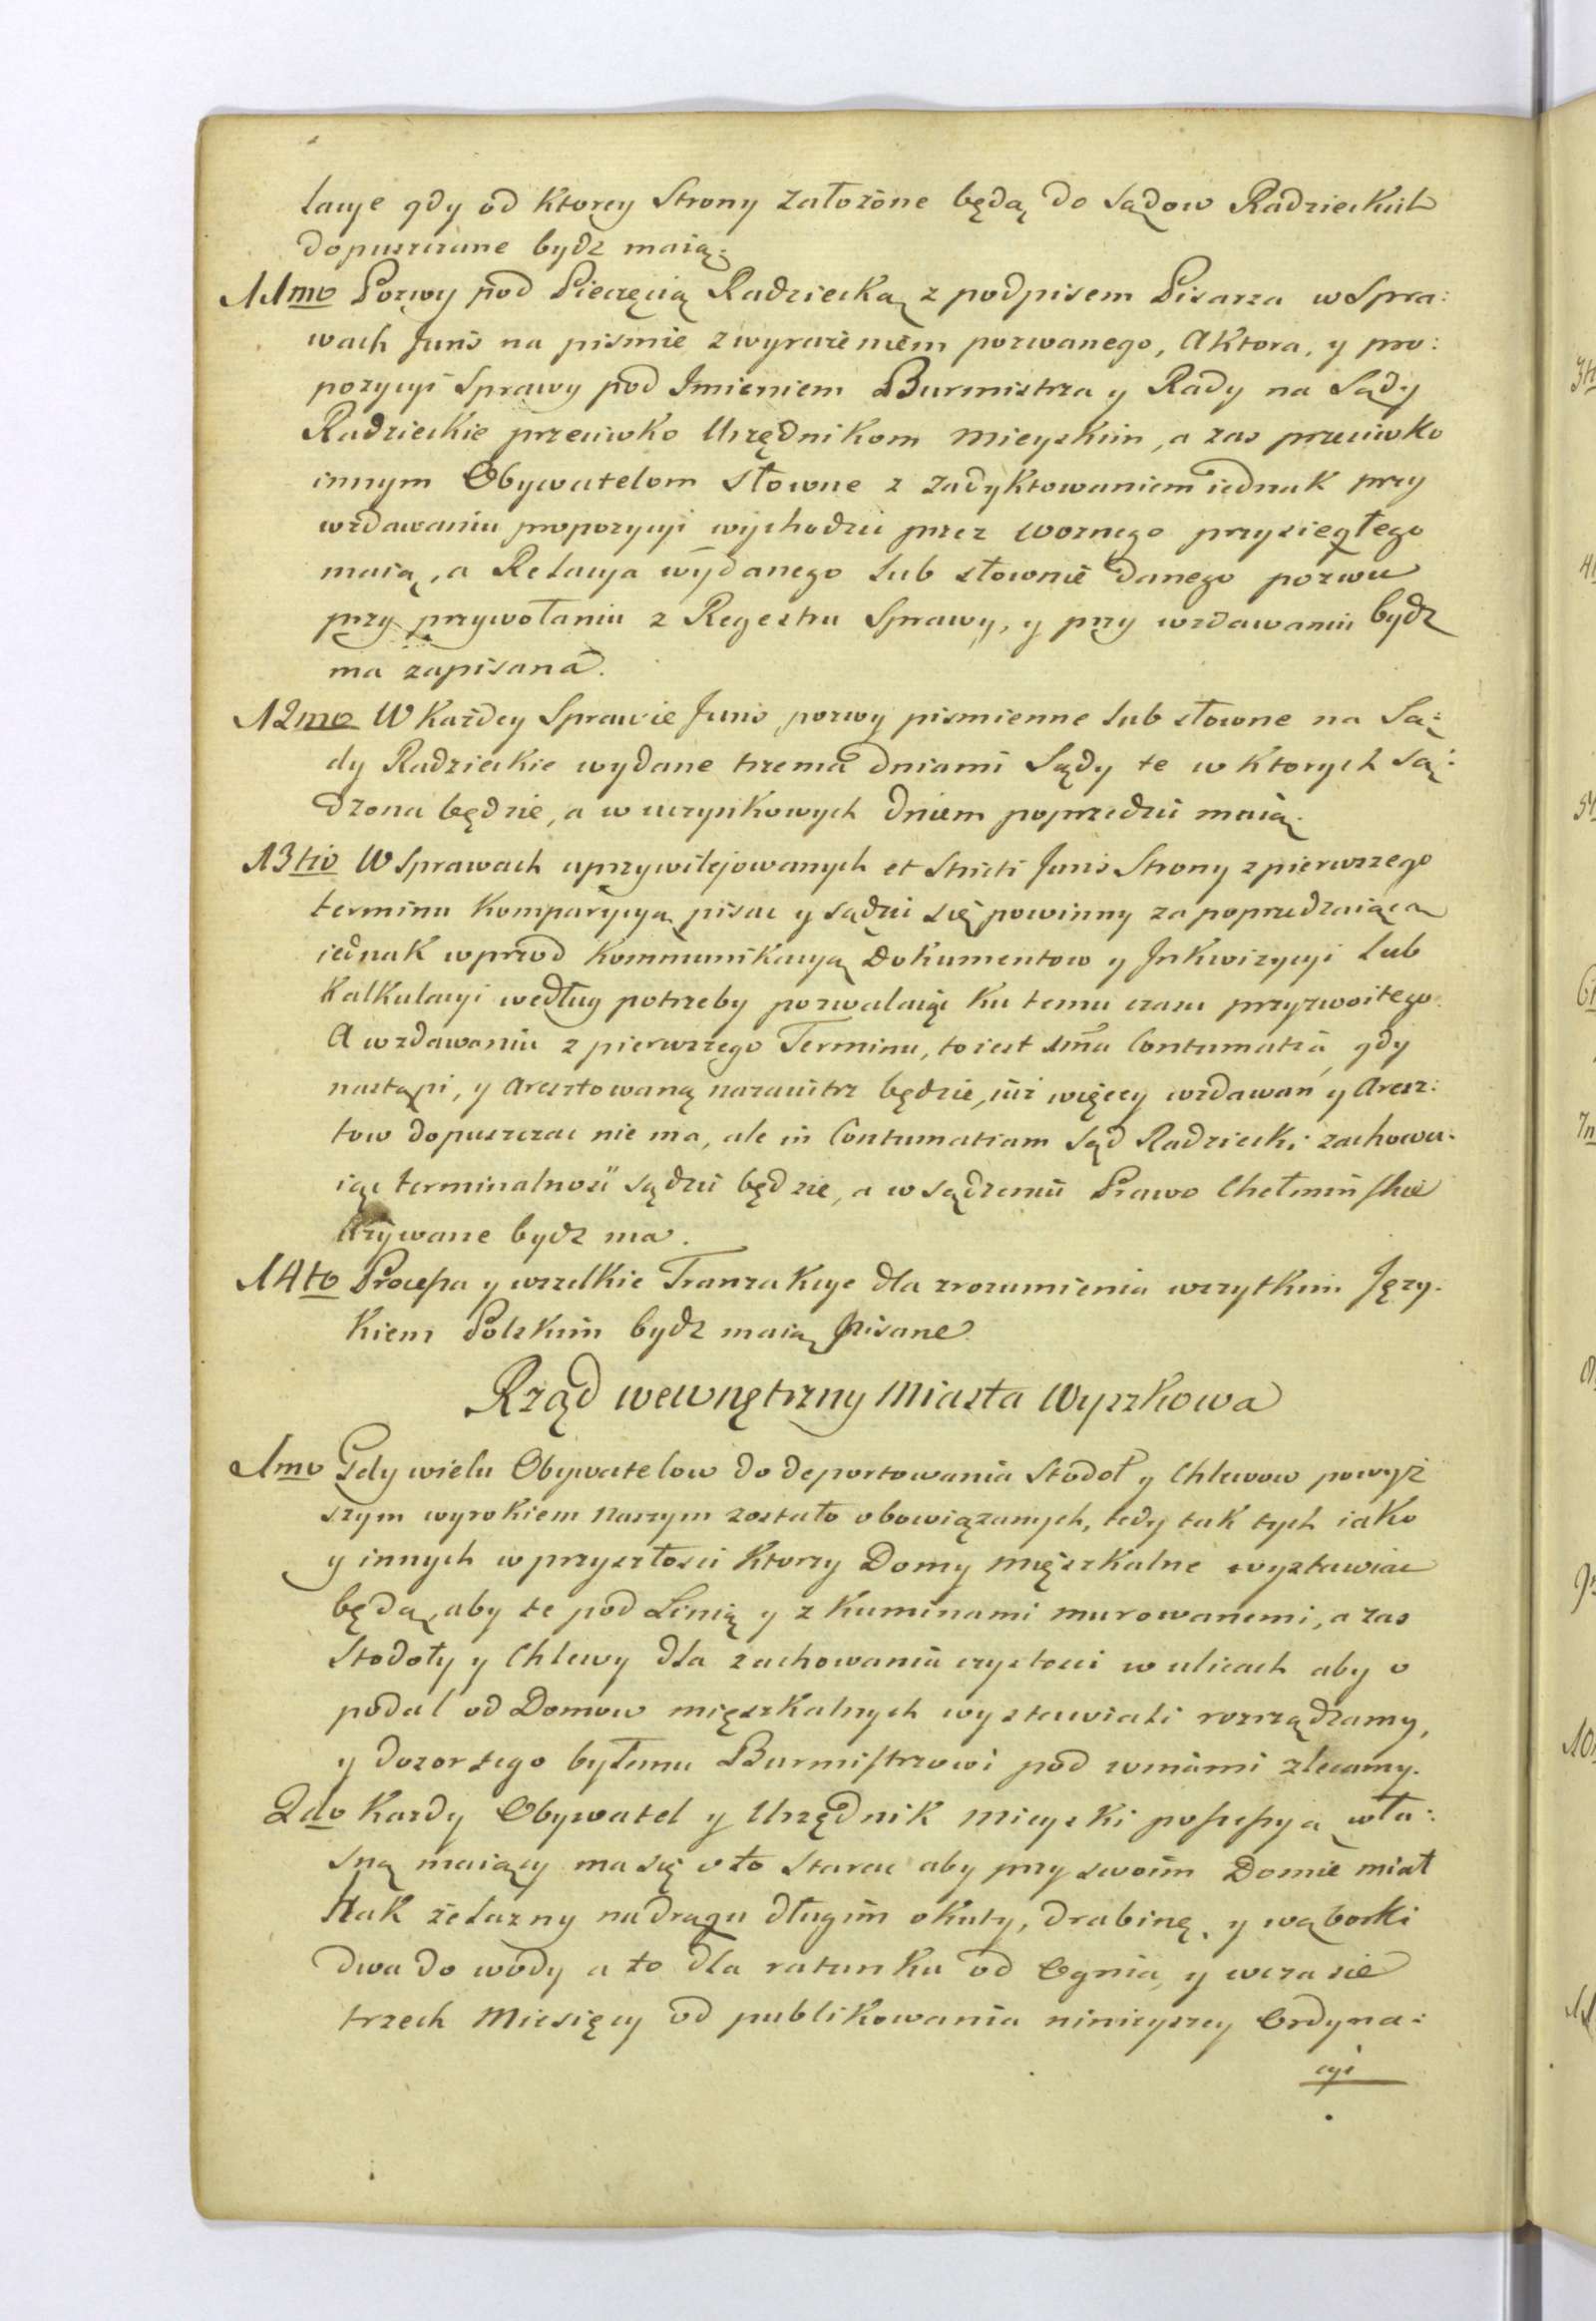 lacye gdy od ktorey Strony założone będą do Sądow Radzieckich
dopuszczane bydz maią.
11mo Pozwy pod Pieczęcią Radziecką z podpisem Pisarza w Spra:
wach Juris na pismie z wyrażeniem pozwanego, Aktora, y pro:
pozycyi Sprawy pod Imieniem Burmistrza y Rady na Sądy
Radzieckie przeciwko Urzędnikom Mieyskim, a zas przeciwko
innym Obywatelom słowne z zadyktowaniem iednak przy
wzdawaniu propozycyi wychodzić przez Woznego przysięgłego
maią, a Relacya wydanego lub słownie danego pozwu
przy przywołaniu z Regestru Sprawy, y przy wzdawaniu bydz
ma zapisana.
12mo W Każdey Sprawie Juris pozwy pismienne lub słowne na Są:
dy Radzieckie wydane trzema dniami Sądy te w ktorych są:
dzona będzie, a w uczynkowych dniem poprzedzić maią.
13tio W Sprawach uprzywilejowanych et Stricti Juris Strony z pierwszego
terminu Komparycyą pisać y sądzić się powinny za poprzedzaiącą
iednak wprzod Kommunikacyą Dokumentow y Inkwizycyi lub
Kalkulacyi według potrzeby pozwalaiąc ku temu czasu przyzwoitego.
A wzdawaniu z pierwszego Terminu, to iest 1ma Contumatia, gdy
nastąpi, y Aresztowaną nazaiutrz będzie, iuż więcey wzdawań y Aresz:
tow dopuszczac nie ma, ale in Contumatiam Sąd Radziecki zachowu:
iąc terminalność sądzić będzie, a w sądzeniu Prawo Chełmińskie
Używane bydz ma.
14to Processa y wszelkie Tranzakcye dla zrozumienia wszytkim Języ:
kiem Polskim bydz maią pisane
Rząd wewnętrzny Miasta Wyszkowa
1mo Gdy wielu Obywatelow do deportowania Stodoł y Chlewow powyż
szym wyrokiem naszym zostało obowiązanych, tedy tak tych iako
y innych w przyszłości ktorzy Domy mięszkalne wystawiac
będą, aby te pod Linią y z kuminami murowanemi, a zas
Stodoły y Chlewy dla zachowania czystości w ulicach aby o
podal od Domow mięszkalnych wystawiali rozrządzamy,
y dozor tego byłemu Burmistrzowi pod winami zlecamy.
2do Kazdy Obywatel y Urzędnik Mieyski possessyą wła:
sną maiący ma się o to starac aby przy swoim Domie miał
Hak żelazny na drągu długim okuty, drabinę, y wąborki
dwa do wody a to dla ratunku od Ognia, y w czasie
trzech Miesięcy od publikowania ninieyszey Ordyna:
cyi